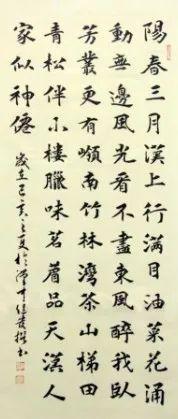 陽春三月漢上行滿目油菜花涌
動無邊風光看不盡東風醉我臥
芳叢更有嶺南竹林灣茶山梯田
青松伴小樓臘味茗眉品天漢人
家似神僊
歲在己亥之夏於漢中撰書